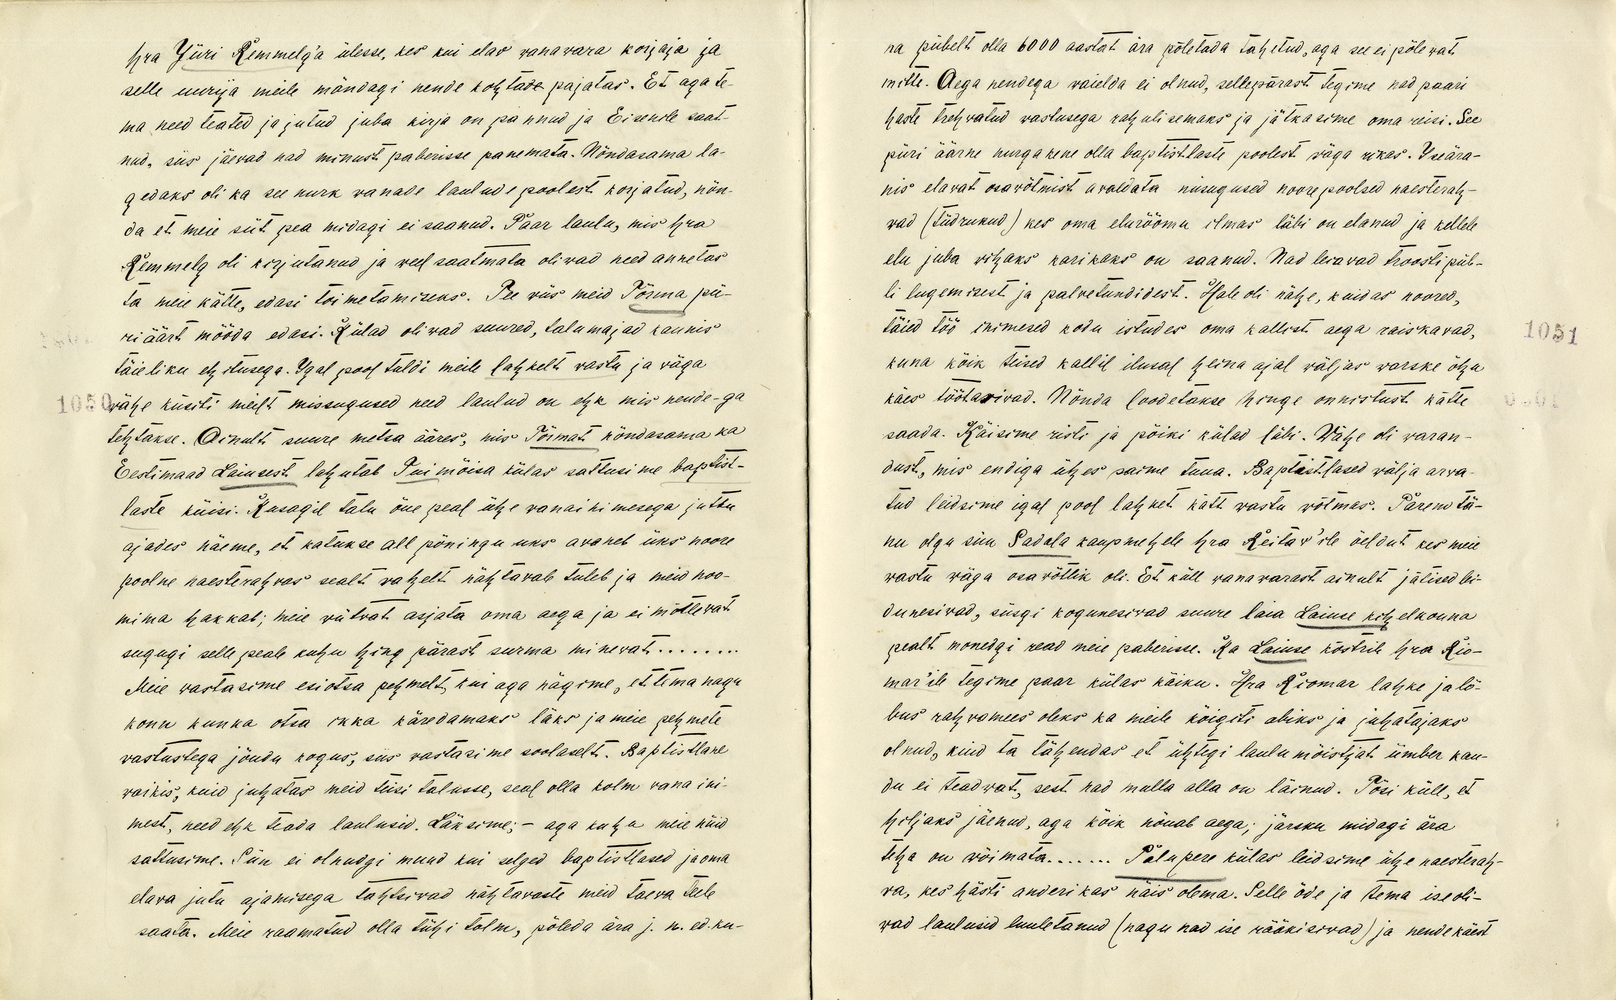 hra Jüri Remmelg'a ülesse, kes kui elav vanavara korjaja ja
selle uurija meile mõndagi nende kohtade pajatas. Et aga te-
ma need teated ja jutud juba kirja on pannud ja Eisenile saat-
nud, siis jäevad nad minust paberisse panemata. Nõndasama la-
gedaks oli ka see nurk vanade laulude poolest korjatud, nõn-
da et meie siit pea midagi ei saanud. Paar laulu, mis hra
Remmelg oli kirjutanud ja veel saatmata olivad need annetas
ta meie kätte, edasi toimetamiseks. Tee viis meid Torma pii-
ri äärt mööda edasi. Külad olivad suured, talumajad kaunis
täieliku ehitusega. Igal pool tuldi meile lahkelt vastu ja väga
1050
vähe küsiti meilt missugused need laulud on ehk mis nende-ga
tehtakse. Ainult suure metsa ääres, mis Tormat nõndasama ka
Eestimaad Laiusest lahutab Tuimõisa külas sattusime baptist-
laste küüsi. Kusagil talu õue peal ühe vanainimesega juttu
ajades näeme, et katukse all põningu uks avaneb üks noore
poolne naesterahvas sealt vahelt nähtavale tuleb ja meid noo-
mima hakkab; meie viitvat asjata oma aega ja ei mõtlevat
sugugi selle peale kuhu hing pärast surma minevat........
Meie vastasime esiotsa pehmelt, kui aga nägime, et tema nagu
konn kunka otsa ikka käredamaks läks ja meie pehmete
vastustega jõudu kogus, siis vastasime soolaselt. Baptistlane
vaikis, kuid juhatas meid teisi talusse, seal olla kolm vana ini-
mest, need ehk teada laulusid. Läksime; – aga kuhu meie nüid
sattusime. Siin ei olnudgi muud kui selged baptistlased ja oma
elava jutu ajamisega tahtsivad nähtavaste meid taeva teele
saata. Meie raamatud olla tühi tolm, põleda ära j. n. ed. ku-
na piibelt olla 6000 aastat ära põletada tahetud, aga see ei põlevat
mitte. Aega nendega vaielda ei olnud, sellepärast tegime nad paari
haste trehvatud vastusega rahulisemaks ja jätkasime oma reisi. See
piiri äärne nurgakene olla baptistlaste poolest väga rikas. Iseära-
nis elavat osavõtmist avaldata niisugused noorepoolsed naesterah-
vad (tüdrukud) kes oma elurõõmu ilmas läbi on elanud ja kellele
elu juba vihaks karikaks on saanud. Nad leiavad troosti piib-
li lugemisest ja palvetundidest. Hale oli näha, kuidas noored,
täied töö inimesed kodu istudes oma kallist aega raiskavad,
1051
kuna kõik teised kallil ilusal heina ajal väljas varske õhu
käes töötasivad. Nõnda loodetakse hinge õnnistust kätte
saada. Käisime risti ja põiki külad läbi. Vähe oli varan-
dust, mis endiga ühes saime tuua. Baptistlased välja arva-
tud leidsime igal pool lahket kätt vastu võtmas. Parem tä-
nu olgu siin Sadala kaupmehele hra Reitav'ile öeldut kes meie
vastu väga osavõtlik oli. Et küll vanavarast ainult jätised lei-
dunesivad, siisgi kogunesivad suure laia Laiuse kihelkonna
pealt monedgi read meie paberisse. Ka Laiuse köstrile hra Rio-
mar'ile tegime paar külas käiku. Hra Riomar lahke ja lõ-
bus rahvamees oleks ka meile kõigiti abiks ja juhatajaks
olnud, kuid ta tähendas et ühtegi laulu mõistjat ümber kau-
du ei teadvat, sest nad mulla alla on läinud. Tõsi küll, et
hiljaks jäenud, aga kõik nõuab aega; järsku midagi ära
teha on võimata....... Palupere külas leidsime ühe naesterah-
va, kes hästi anderikas näis olema. Selle õde ja tema ise oli-
vad laulusid luuletanud (nagu nad ise rääkisivad) ja nende käest